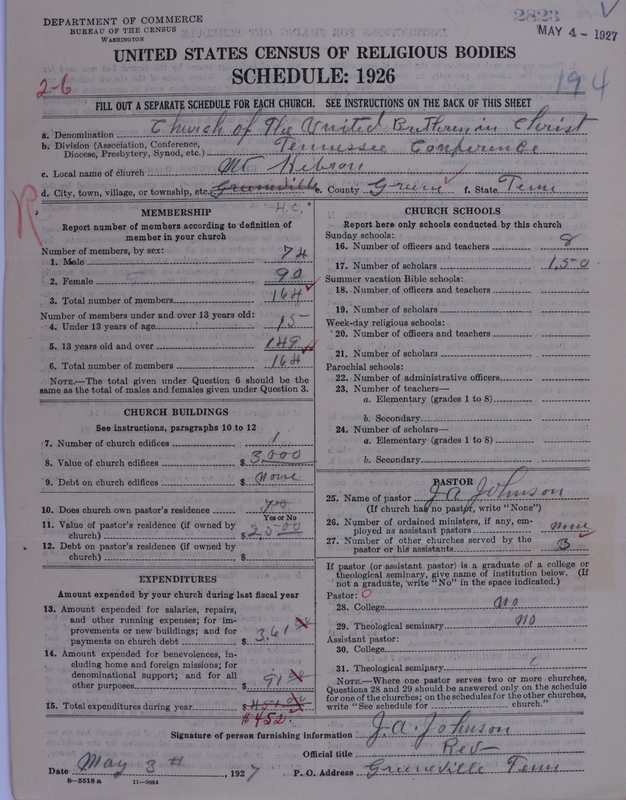 DEPARTMENT OF COMMERCE
BUREAU OF THE CENSUS
WASHINGTON
2823
MAY 4 - 1927
UNITED STATES CENSUS OF RELIGIOUS BODIES
SCHEDULE: 1926
2-6
194
FILL OUT A SEPARATE SCHEDULE FOR EACH CHURCH. SEE INSTRUCTIONS ON THE BACK OF THIS SHEET
a. Denomination Church of The United Brethren in Christ
b. Division (Association, Conference, Diocese, Presbytery, Synod, etc.) Tennessee Conference
c. Local name of church Mt Hebron
d. City, town, village, or township, etc. Greeneville e. County Green f. State Tenn
R
H.C.
MEMBERSHIP
Report number of members according to definition of
member in your church
Number of members, by sex:
1. Male 74
2. Female 90
3. Total number of members 164
Number of members under and over 13 years old:
4. Under 13 years of age 15
5. 13 years old and over 149
6. Total number of members 164
NOTE.—The total given under Question 6 should be the
same as the total of males and females given under Question 3.
CHURCH BUILDINGS
See instructions, paragraphs 10 to 12
7. Number of church edifices 1
8. Value of church edifices $ 3,000
9. Debt on church edifices $ None
10. Does church own pastor's residence yes
Yes or No
11. Value of pastor's residence (if owned by
church) $ 2500
12. Debt on pastor's residence (if owned by
church) $
EXPENDITURES
Amount expended by your church during last fiscal year
13. Amount expended for salaries, repairs,
and other running expenses; for im-
provements or new buildings; and for
payments on church debt $ 361
14. Amount expended for benevolences, in-
cluding home and foreign missions; for
denominational support; and for all
other purposes $ 91
15. Total expenditures during year $
$452.
CHURCH SCHOOLS
Report here only schools conducted by this church
Sunday schools:
16. Number of officers and teachers 8
17. Number of scholars 150
Summer vacation Bible schools:
18. Number of officers and teachers
19. Number of scholars
Week-day religious schools:
20. Number of officers and teachers
21. Number of scholars
Parochial schools:
22. Number of administrative officers
23. Number of teachers—
a. Elementary (grades 1 to 8)
b. Secondary
24. Number of scholars—
a. Elementary (grades 1 to 8)
b. Secondary
PASTOR
25. Name of pastor J.A. Johnson
(If church has no pastor, write "None")
26. Number of ordained ministers, if any, em-
ployed as assistant pastors none
27. Number of other churches served by the
pastor or his assistants 3
If pastor (or assistant pastor) is a graduate of a college or
theological seminary, give name of institution below. (If
not a graduate, write "No" in the space indicated.)
Pastor: O
28. College no
29. Theological seminary no
Assistant pastor:
30. College
31. Theological seminary
NOTE.—Where one pastor serves two or more churches,
Questions 28 and 29 should be answered only on the schedule
for one of the churches; on the schedules for the other churches,
write "See schedule for church."
Signature of person furnishing information J.A. Johnson
Official title Rev
Date May 3rd, 1927 P. O. Address Greeneville Tenn
8-5518 a 11-9034